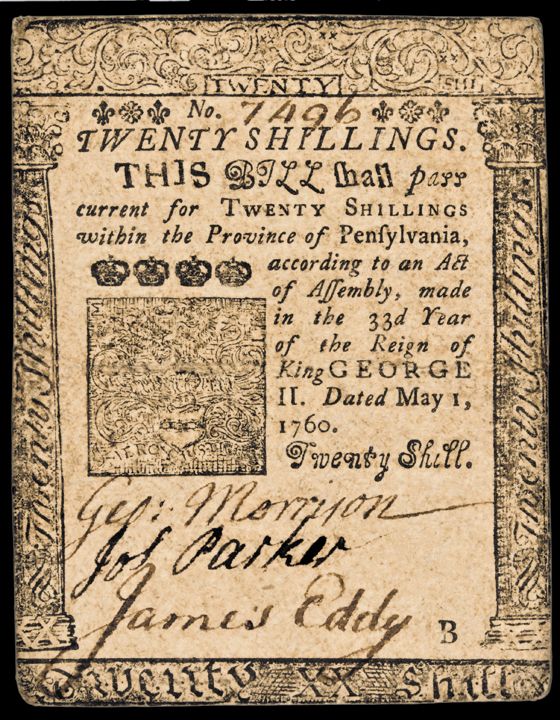 TWENTY SHIL
No. 7496
TWENTY SHILLINGS.
THIS BILL ſhall paſs
current for TWENTY SHILLINGS
within the Province of Penſylvania,
according to an Act
of Aſſembly, made
in the 33d Year
of the Reign of
King GEORGE
II. Dated May 1,
1760.
Twenty Shill.
MERCY JUSTI
Geo: Morriſon
Joſ Parker
James Eddy
B
Twenty Shillings
XX
XX
Twenty XX Shill